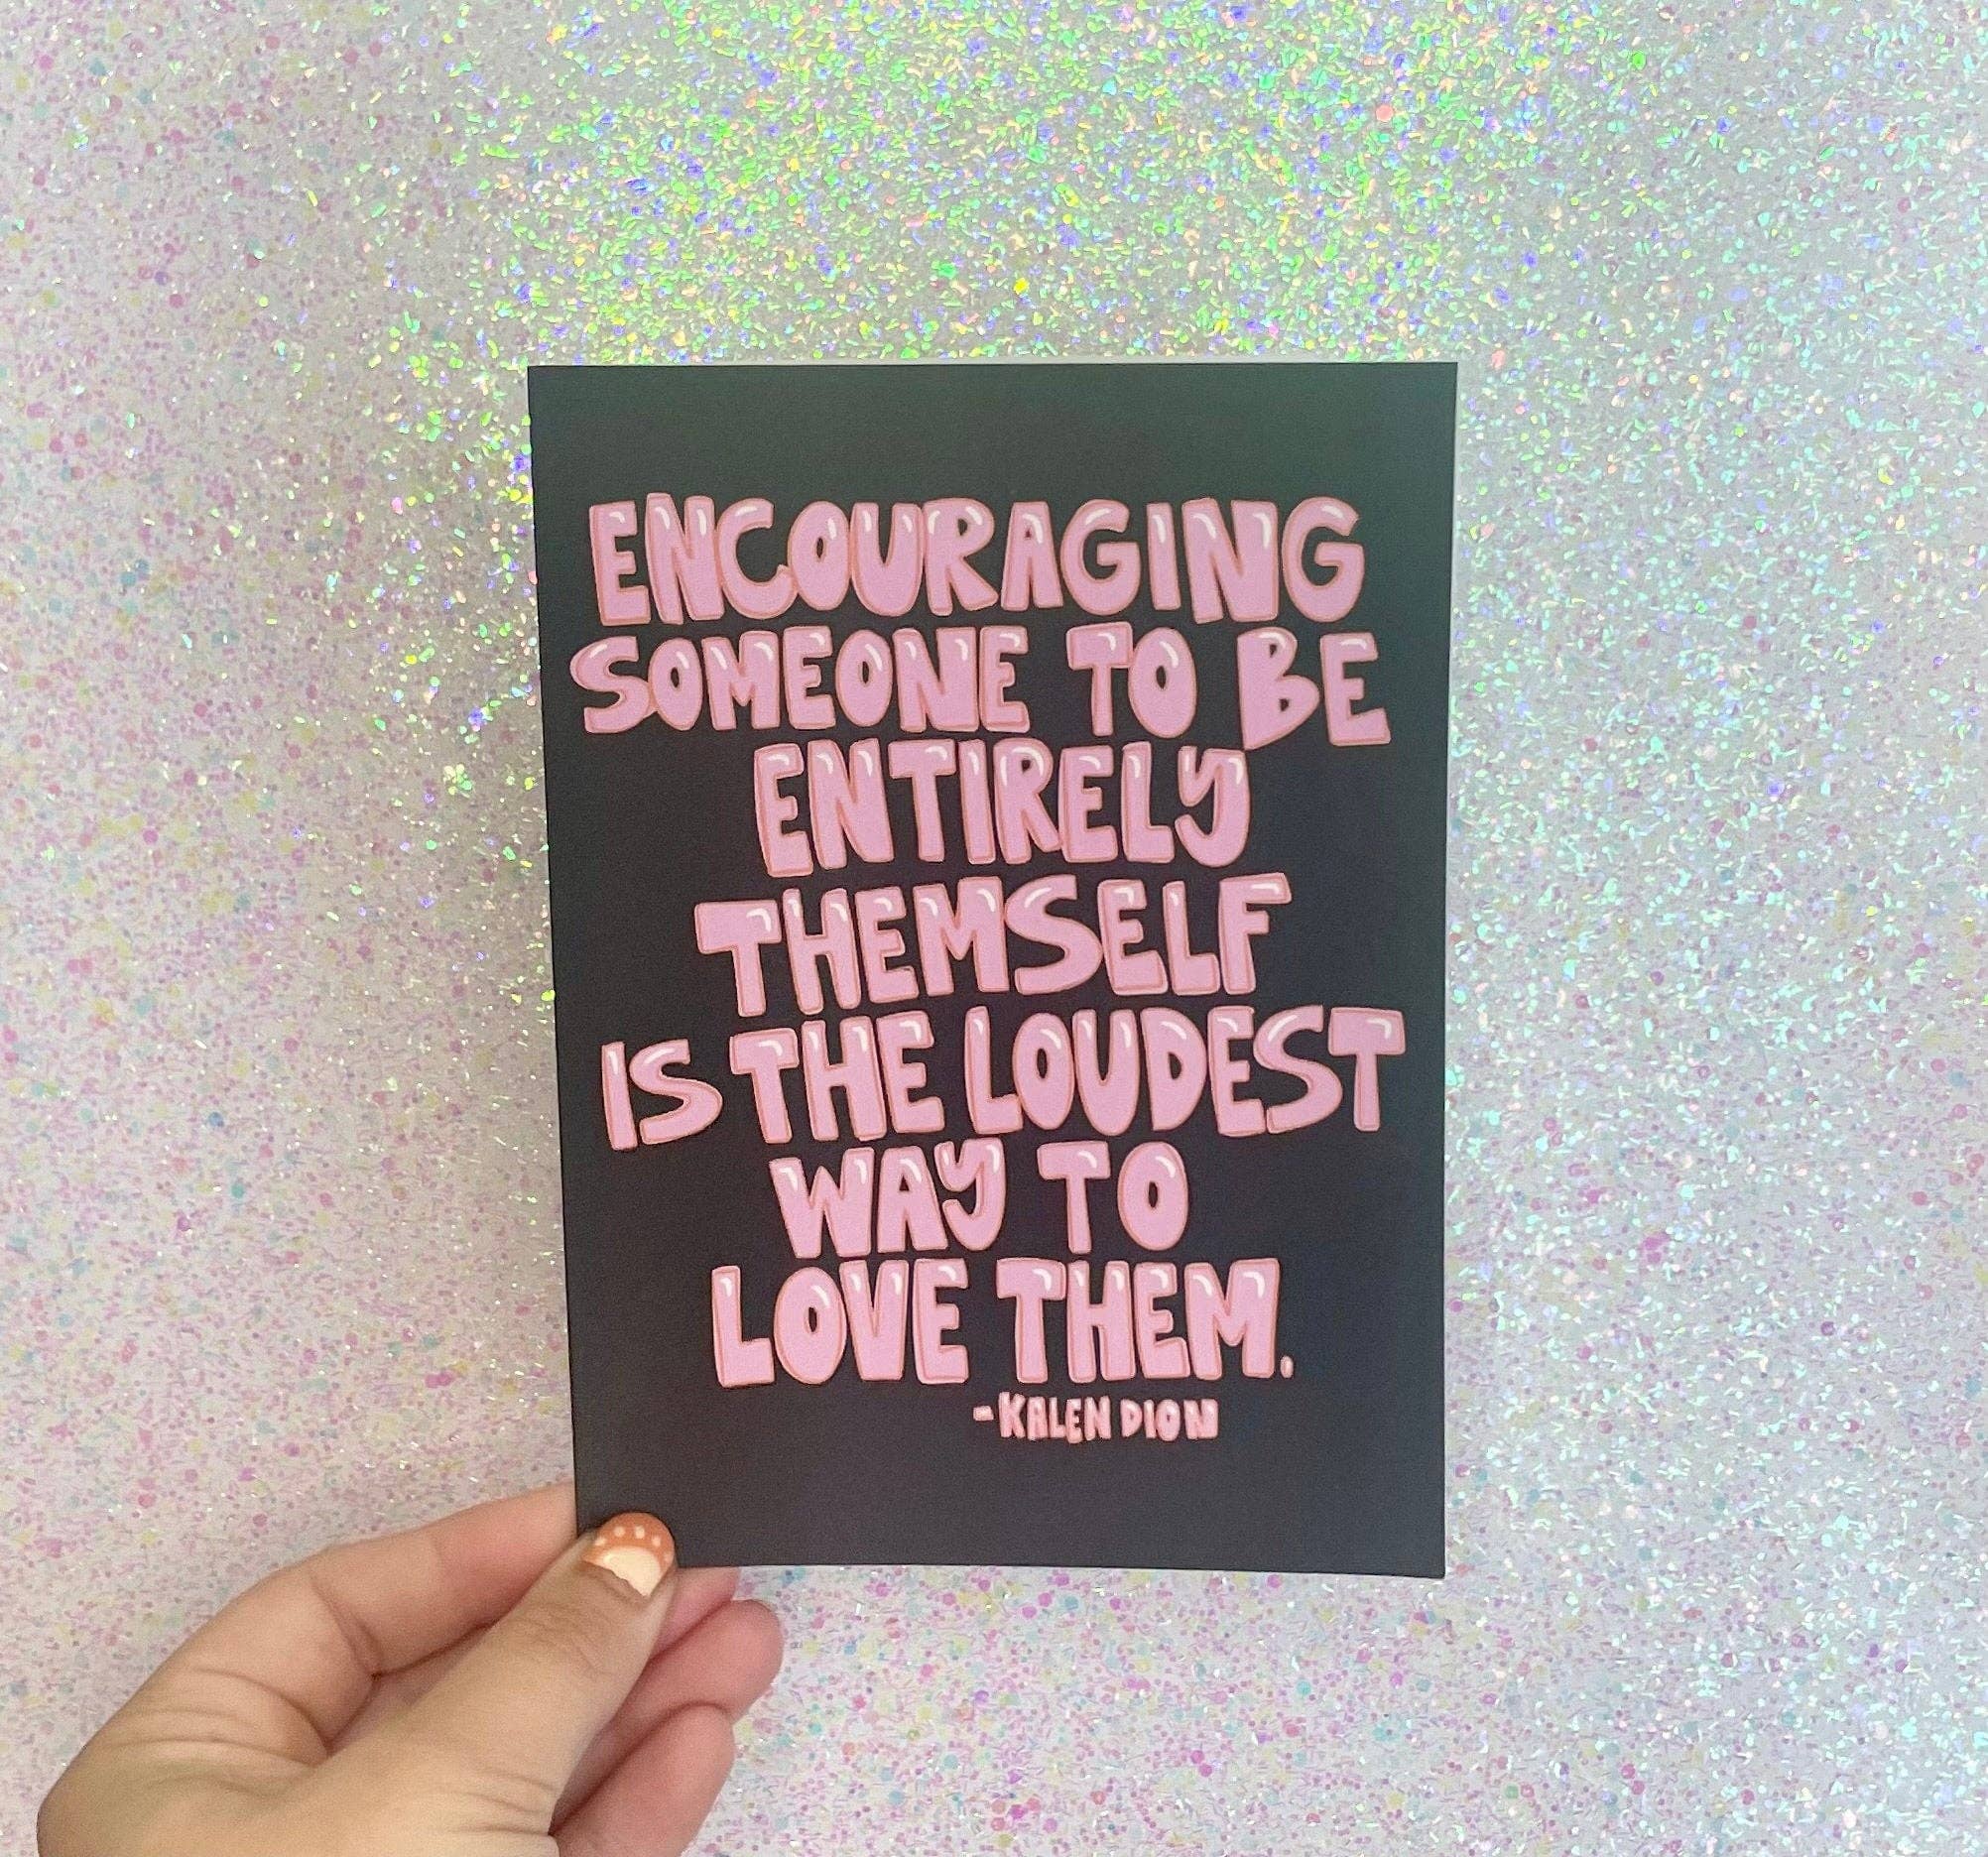 ENCOURAGING
SOMEONE TO BE
ENTIRELY
THEMSELF
IS THE LOUDEST
WAY TO
LOVE THEM.
-KALEN DION